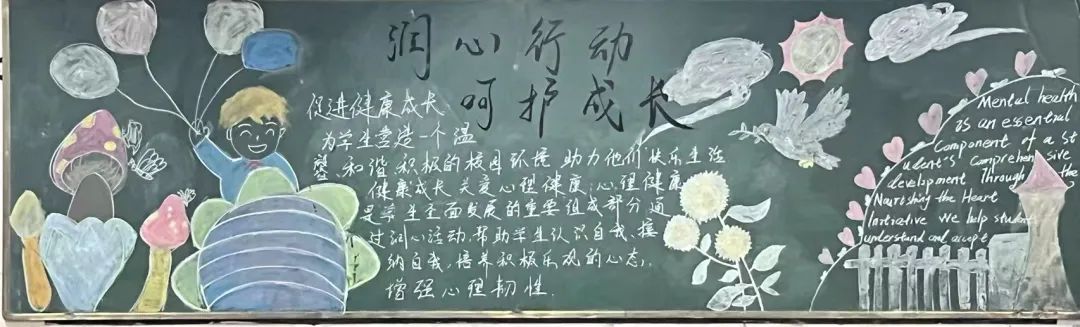 润心行动
呵护成长
促进健康成长
为学生营造一个温
馨和谐积极的校园环境助力他们快乐生活
健康成长关爱心理健康:心理健康
是学生全面发展的重要组成部分通
过润心活动,帮助学生认识自我、接
纳自我,培养积极乐观的心态,
增强心理韧性.
Mental health
is an essential
Component of a st
udent's Comprehensive
development Through the
Nourishing the Heart
Initiative We help student
understand and accept